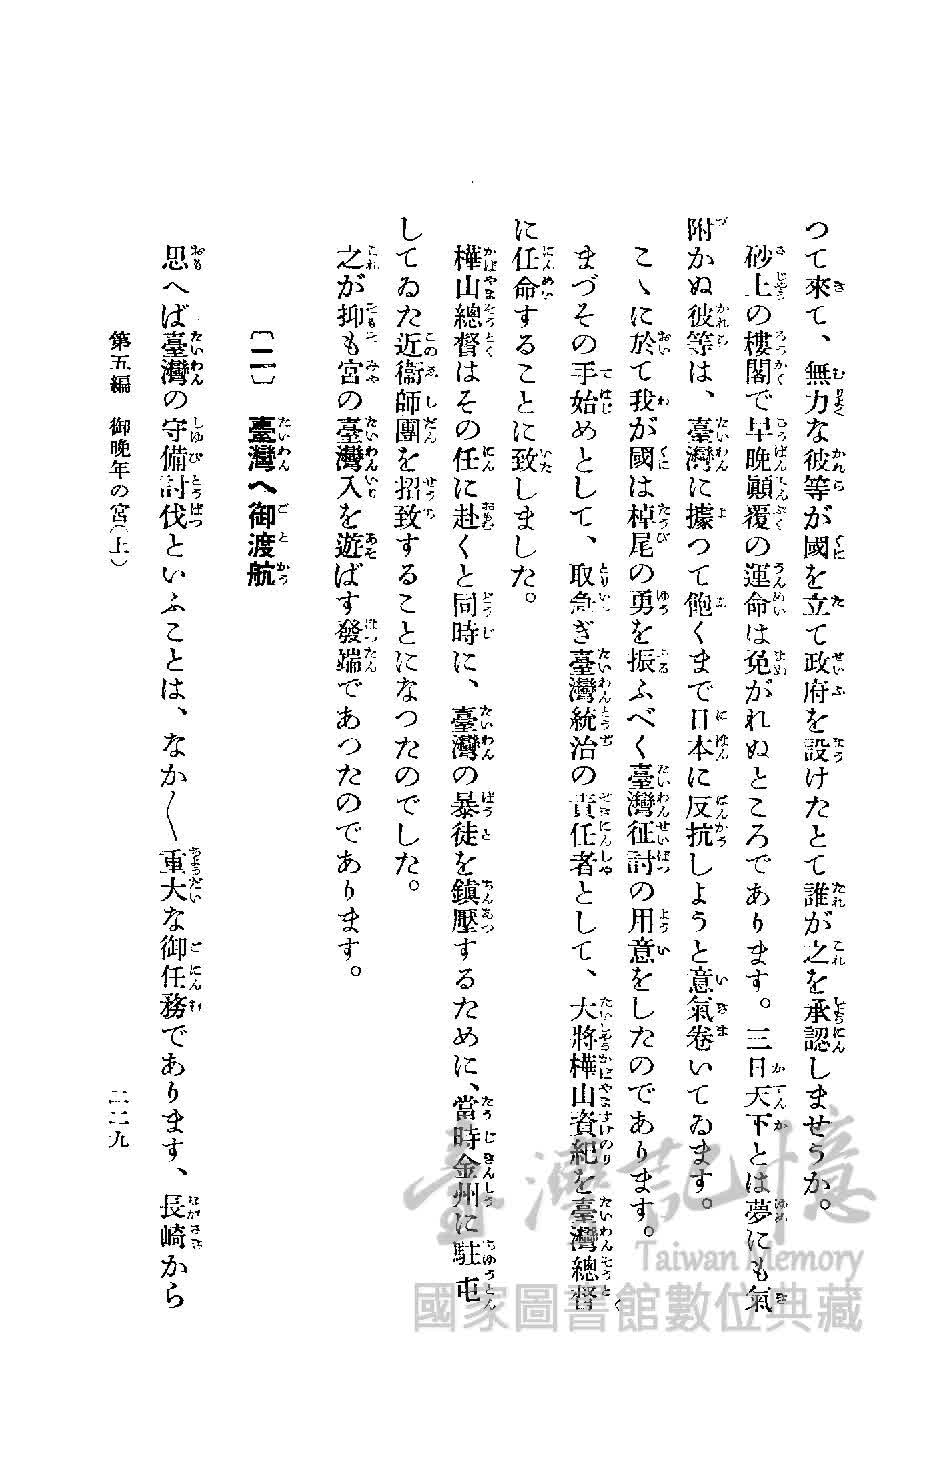 つて來て、無力な彼等が國を立て政府を設けたとて誰が之を承認しませうか。
砂上の樓閣で早晩顚覆の運命は免がれぬところであります。三日天下とは夢にも氣
附かぬ彼等は、臺灣に據つて飽くまで日本に反抗しようと意氣卷いてゐます。
こゝに於て我が國は棹尾の勇を振ふべく臺灣征討の用意をしたのであります。
まづその手始めとして、取急ぎ臺灣統治の責任者として、大將樺山資紀を臺灣總督
に任命することに致しました。
樺山總督はその任に赴くと同時に、臺灣の暴徒を鎭壓するために、當時金州に駐屯
してゐた近衞師團を招致することになつたのでした。
之が抑も宮の臺灣入を遊ばす發端であつたのであります。
〔二〕 臺灣へ御渡航
思へば臺灣の守備討伐といふことは、なか〱重大な御任務であります、長崎から
第五編 御晩年の宮(上)
二二九
臺灣記憶
Taiwan Memory
國家圖書館數位典藏